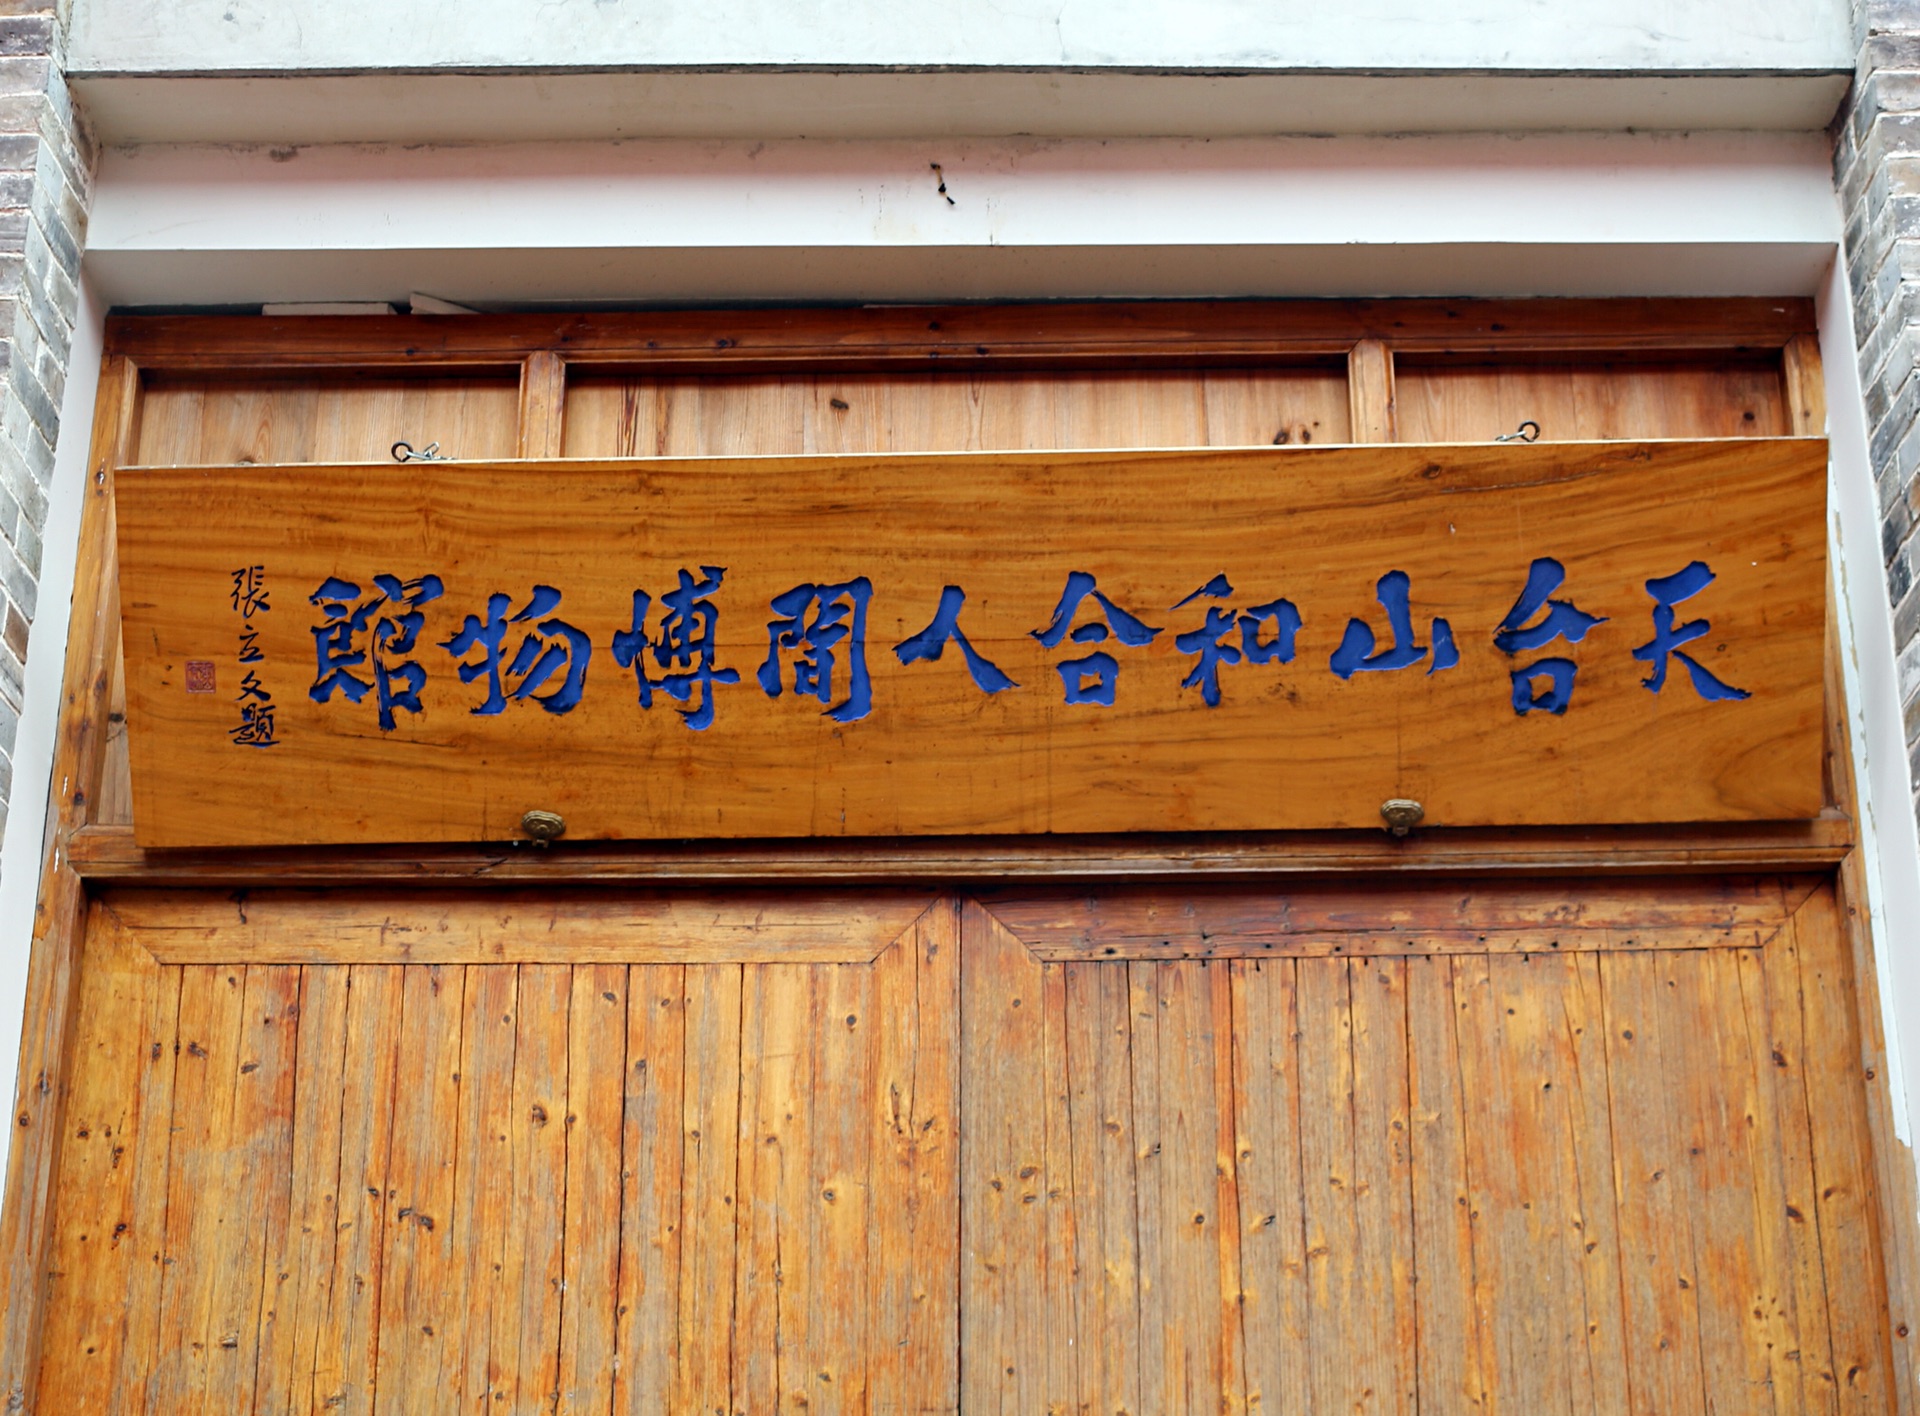 天台山和合人間博物館
張立文題